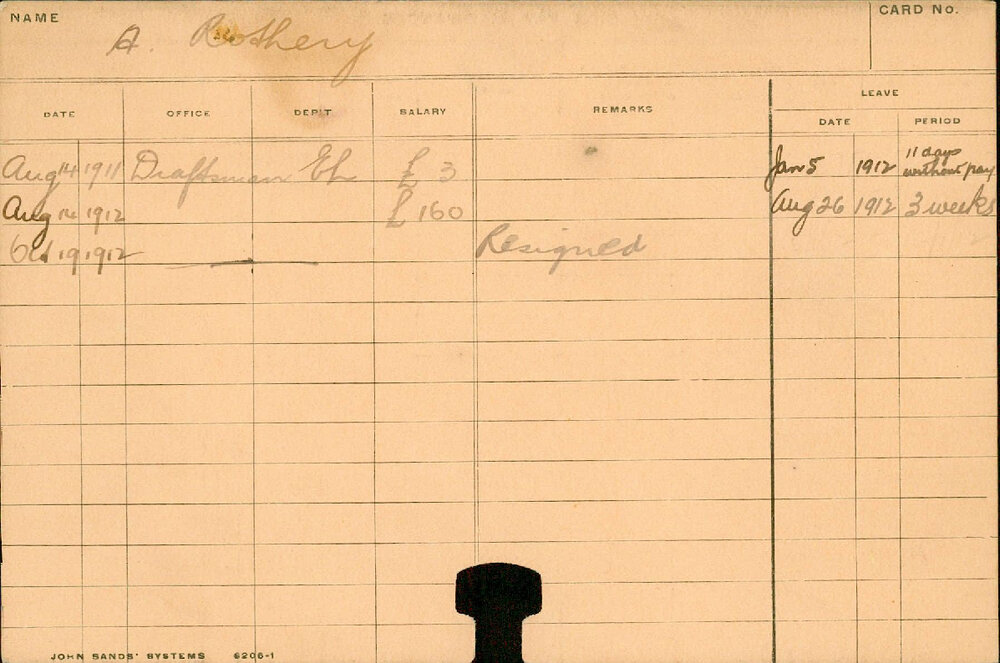 NAME A. Rothery CARD No.
LEAVE
DATE OFFICE DEPT SALARY REMARKS DATE PERIOD
Aug 14 1911 Draftsman £ 3 Jan 5 1912 11 days without pay
Aug 14 1912 £ 160 Aug 26 1912 3 weeks
Oct 19 1912 Resigned
JOHN SANDS' SYSTEMS 6206-1